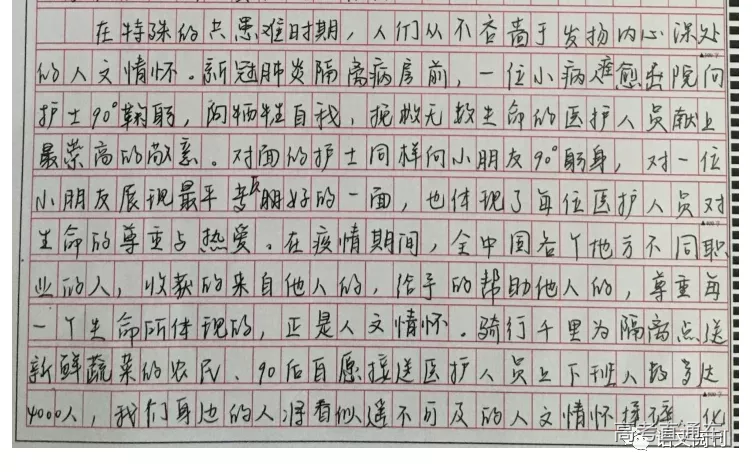 在特殊的共患难时期，人们从不吝啬于发扬内心深处
的人文情怀。新冠肺炎隔离病房前，一位小病难愈出院向
护士90°鞠躬，向牺牲自我，挽救无数生命的医护人员献上
最崇高的敬意。对面的护士同样向小朋友90°躬身，对一位
小朋友展现最平美好的一面，也体现了每位医护人员对
生命的尊重与热爱。在疫情期间，全中国各个地方不同职
业的人，收获的来自他人的，给予的帮助他人的，尊重每
一个生命所体现的，正是人文情怀。骑行千里为隔离点送
新鲜蔬菜的农民、90后自愿接送医护人员上下班人数多达
4000人，我们身边的人将看似遥不可及的人文情怀 化
高考直通车
语文阅刊